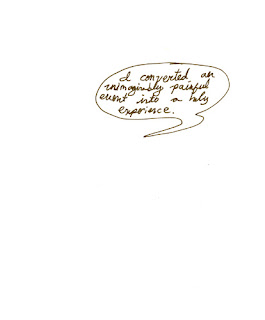 I converted an
unimaginably painful
event into a holy
experience.